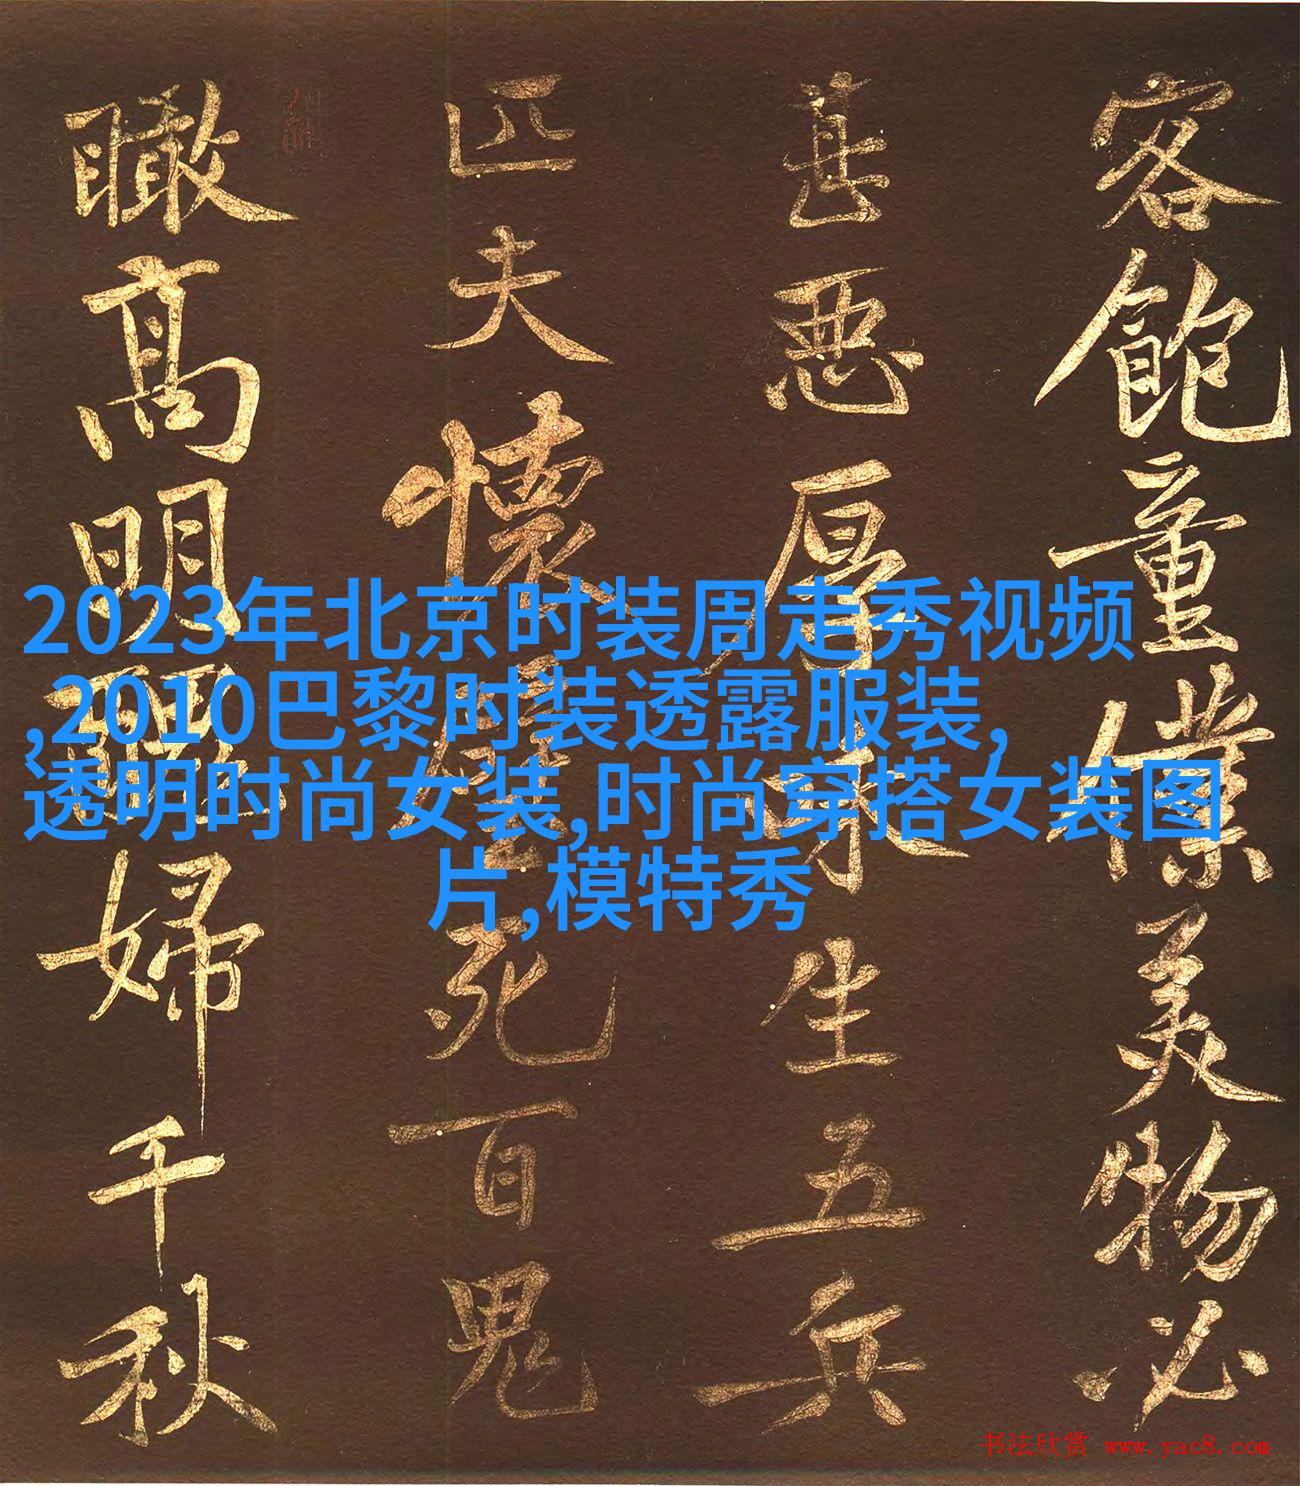 客飽童僕美物必
甚悪厚味生五兵
匹夫懷璧死百鬼
瞰高明醜婦千秋
2023年北京时装周走秀视频
,2010巴黎时装透露服装,
透明时尚女装,时尚穿搭女装图
片,模特秀
书法欣赏 www.yac8.com